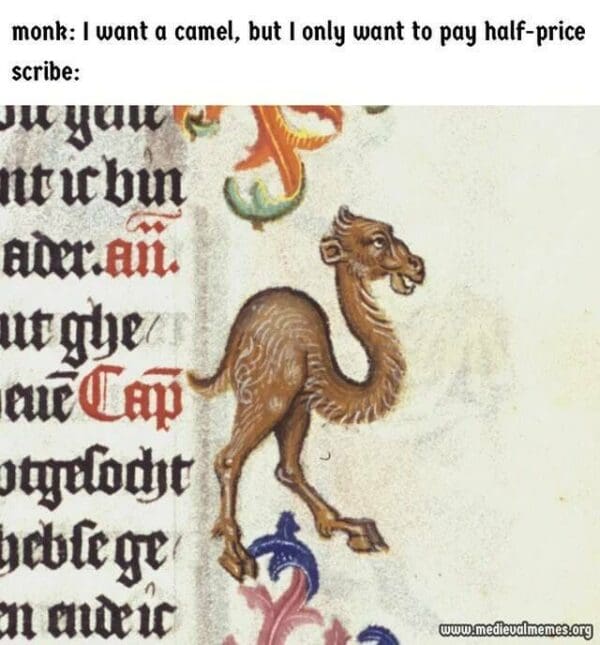 monk: I want a camel, but I only want to pay half-price
scribe:
nt ic bin
ader.an̄.
ut ghe
euē Cap̄
otgeſocht
hebſe ge
en ende ic
www.medievalmemes.org